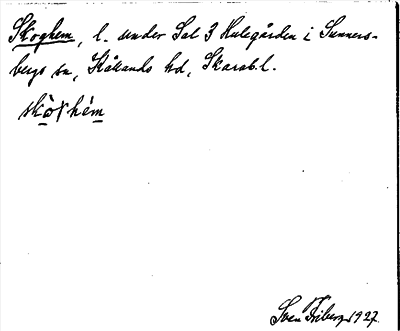 Skoghem, l. under Sal 3 Hulegården i Sunners-
bergs sn, Kållands hd, Skarab.l.
skòꝩhém
Sven Friberg 1927